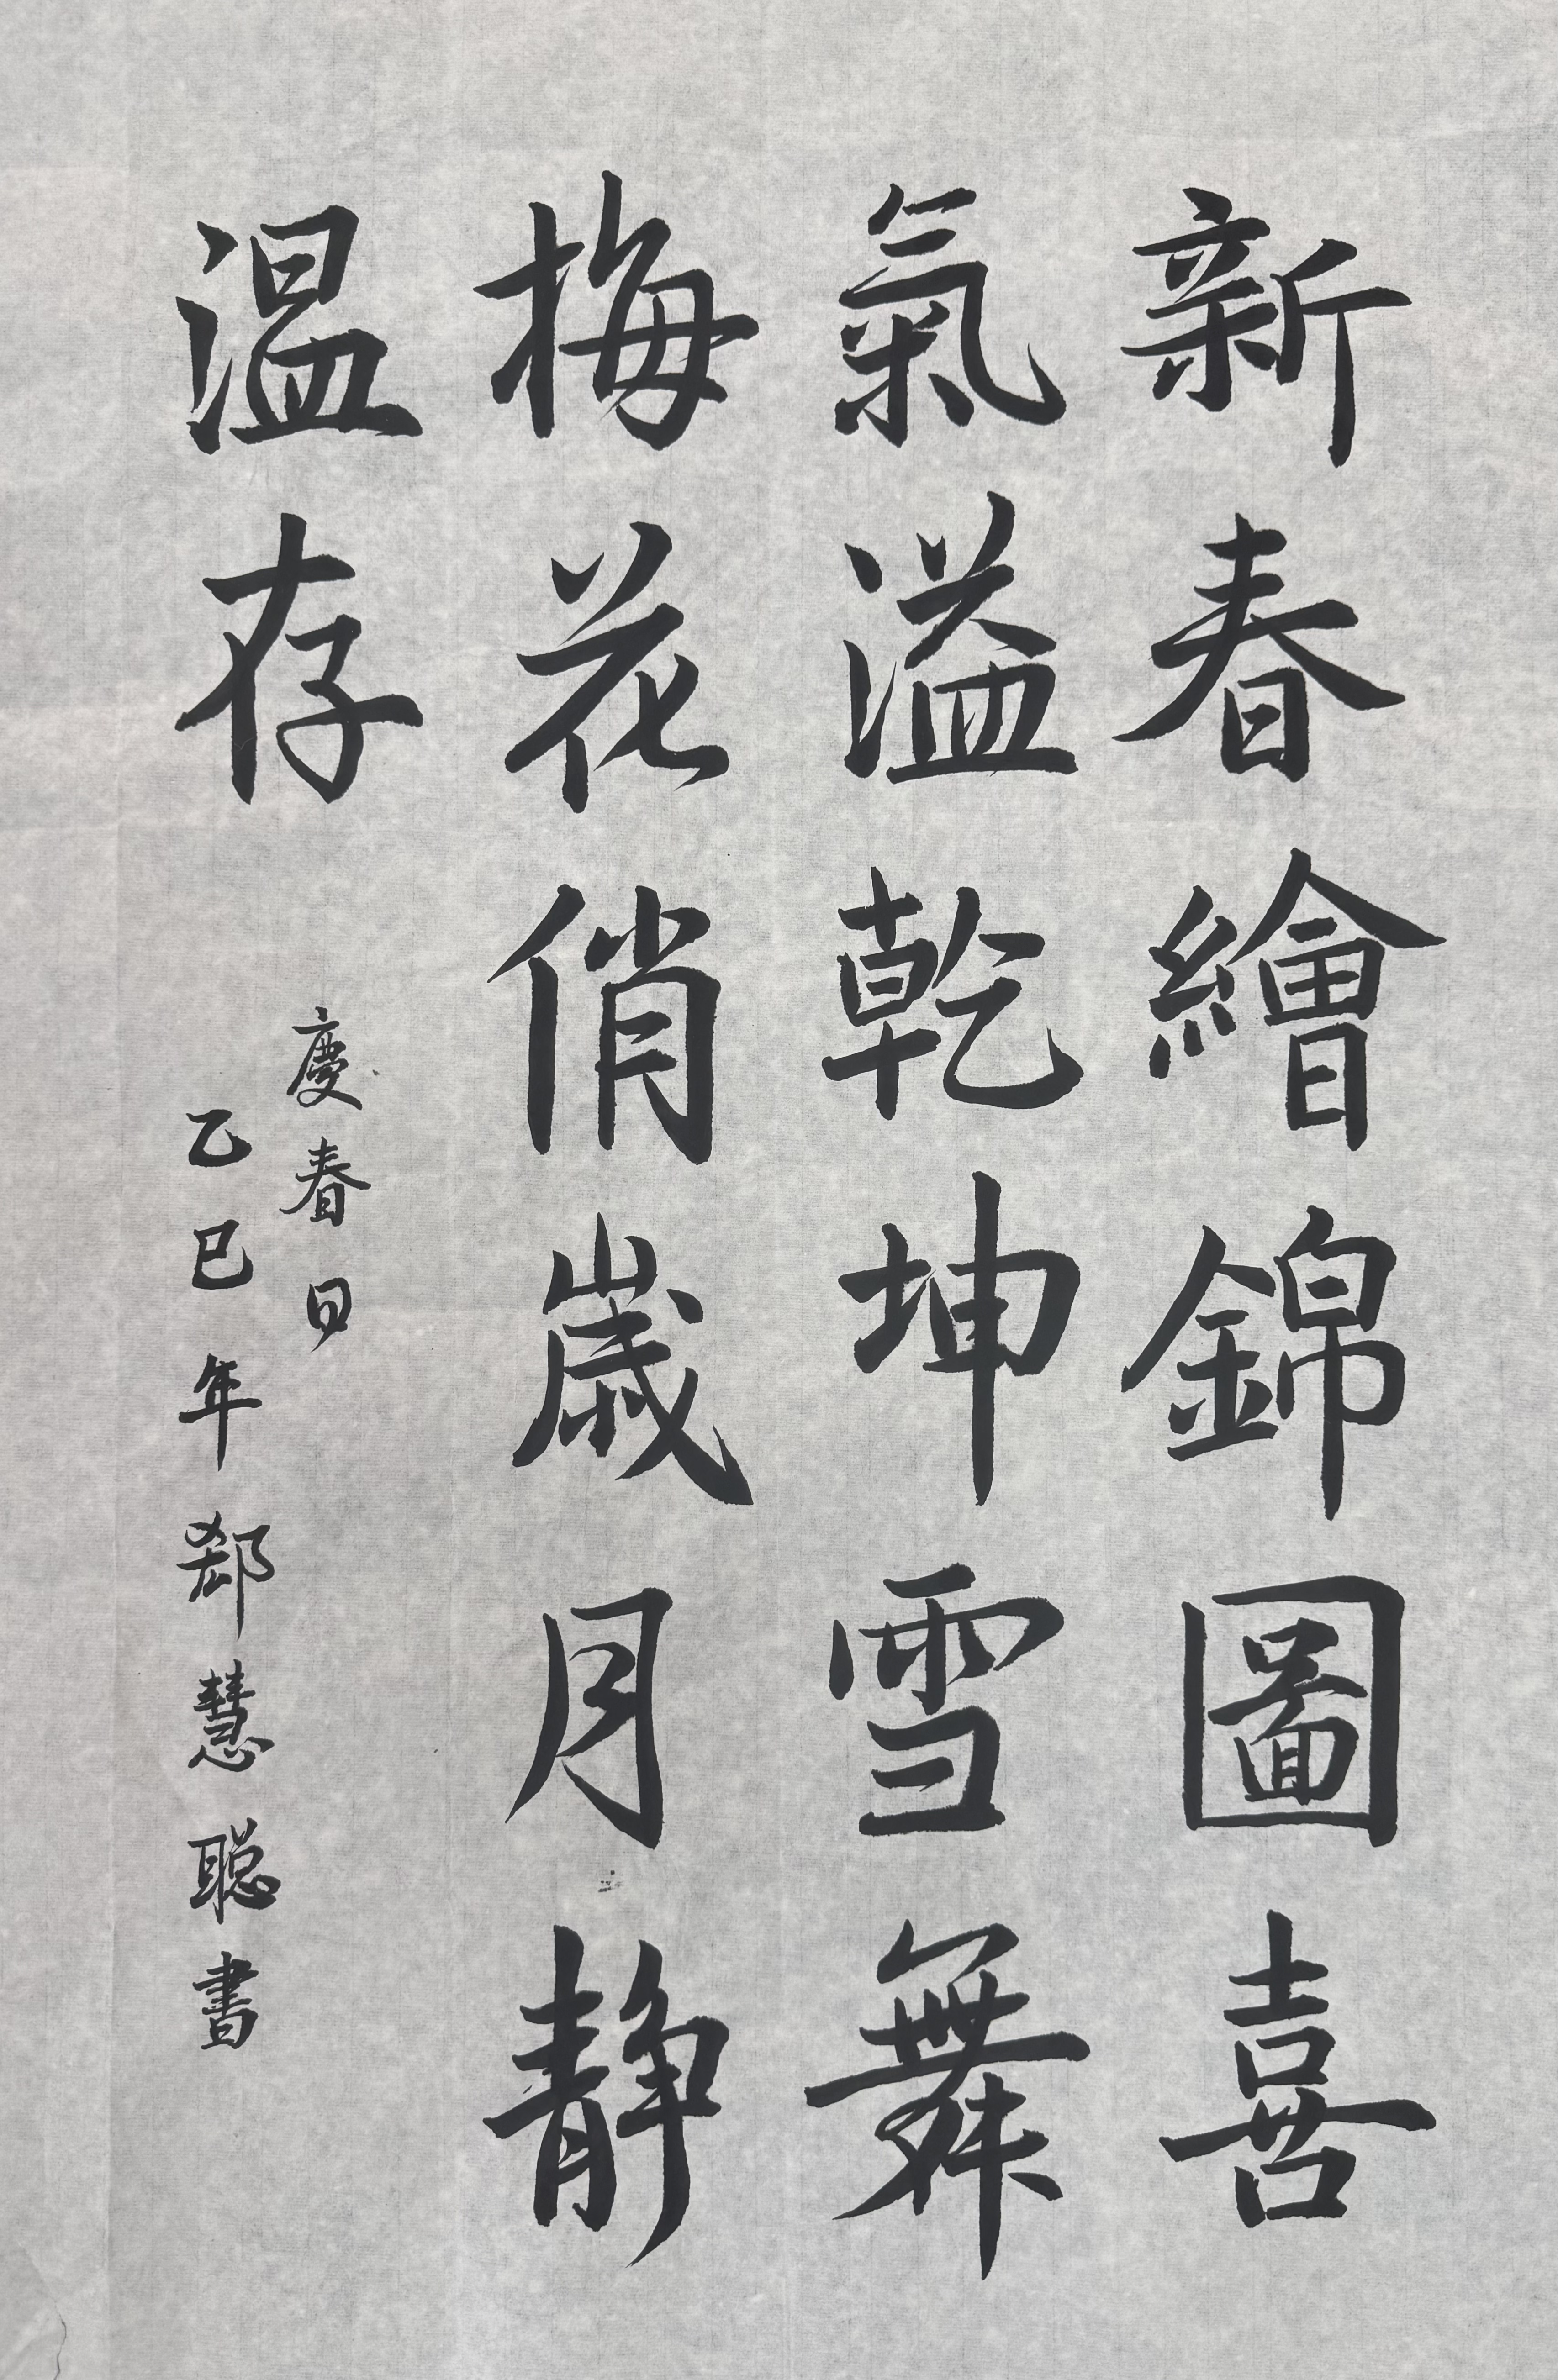 新春繪錦圖喜
氣溢乾坤雪舞
梅花俏歲月静
温存
慶春日
乙巳年郄慧聪書